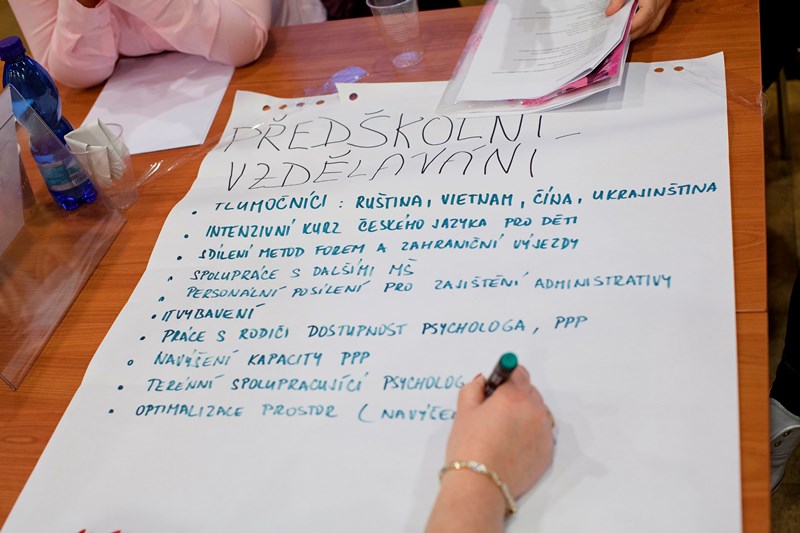 PŘEDŠKOLNÍ
VZDĚLAVÁNÍ
• TLUMOČNÍCI : RUŠTINA, VIETNAM, ČÍNA, UKRAJINŠTINA
• INTENZIVNÍ KURZ ČESKÉHO JAZYKA PRO DĚTI
• SDÍLENÍ METOD FOREM A ZAHRANIČNÍ VÝJEZDY
• SPOLUPRÁCE S DALŠÍMI MŠ
• PERSONÁLNÍ POSÍLENÍ PRO ZAJIŠTĚNÍ ADMINISTRATIVY
• IT VYBAVENÍ
• PRÁCE S RODIČI DOSTUPNOST PSYCHOLOGA, PPP
• NAVÝŠENÍ KAPACITY PPP
• TERÉNNÍ SPOLUPRACUJÍCÍ PSYCHOLOG
• OPTIMALIZACE PROSTOR (NAVÝŠE